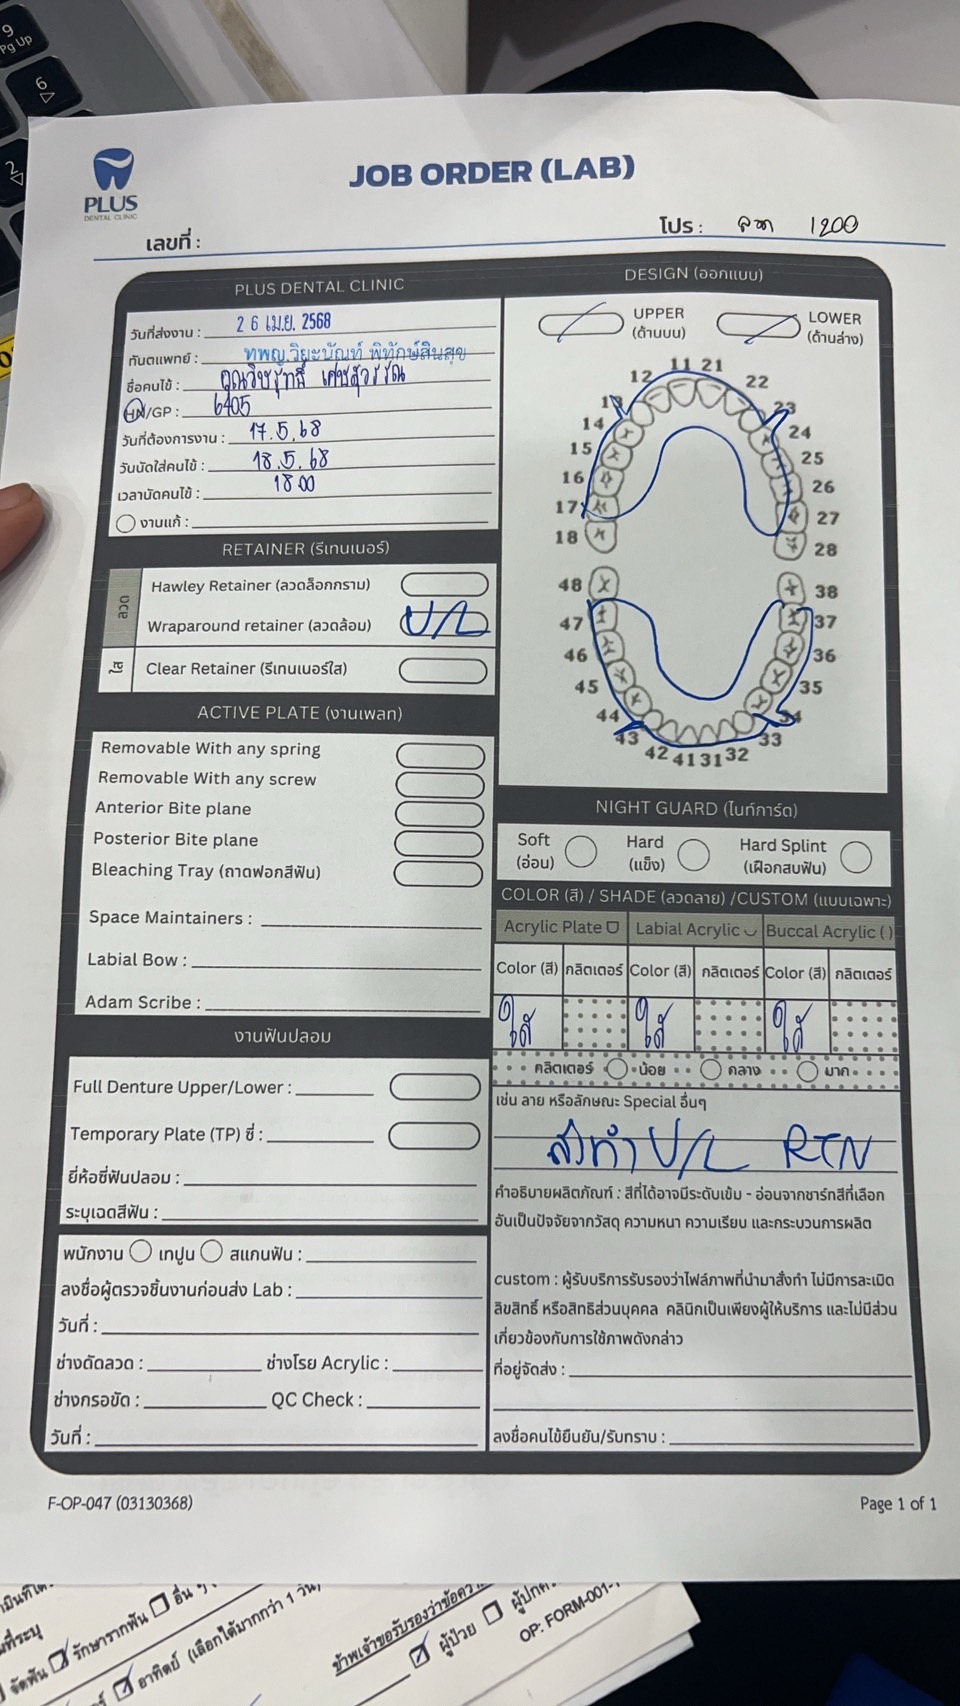 9
Pg Up
6
2
PLUS
DENTAL CLINIC
JOB ORDER (LAB)
เลขที่ :
โปร : ลด 1200
PLUS DENTAL CLINIC
วันที่ส่งงาน : 26 เม.ย. 2568
ทันตแพทย์ : ทพญ.วิยะนัณท์ พิทักษ์สินสุข
ชื่อคนไข้ : คุณวิษรุทธิ์
HN/GP : 6405
วันที่ต้องการงาน : 17.5.68
วันนัดใส่คนไข้ : 18.5.68
เวลานัดคนไข้ : 18.00
งานแก้ :
RETAINER (รีเทนเนอร์)
ลวด
Hawley Retainer (ลวดล็อกกราม)
Wraparound retainer (ลวดล้อม) U/L
ใส
Clear Retainer (รีเทนเนอร์ใส)
ACTIVE PLATE (งานเพลท)
Removable With any spring
Removable With any screw
Anterior Bite plane
Posterior Bite plane
Bleaching Tray (ถาดฟอกสีฟัน)
Space Maintainers :
Labial Bow :
Adam Scribe :
งานฟันปลอม
Full Denture Upper/Lower :
Temporary Plate (TP) ซี่ :
ยี่ห้อซี่ฟันปลอม :
ระบุเฉดสีฟัน :
พนักงาน เทปูน สแกนฟัน :
ลงชื่อผู้ตรวจชิ้นงานก่อนส่ง Lab :
วันที่ :
ช่างดัดลวด : ช่างโรย Acrylic :
ช่างกรอขัด : QC Check :
วันที่ :
DESIGN (ออกแบบ)
UPPER
(ด้านบน)
LOWER
(ด้านล่าง)
11 21
12 22
13 23
14 24
15 25
16 26
17 27
18 28
48 38
47 37
46 36
45 35
44 34
43 33
42 41 31 32
NIGHT GUARD (ไนท์การ์ด)
Soft
(อ่อน)
Hard
(แข็ง)
Hard Splint
(เฝือกสบฟัน)
COLOR (สี) / SHADE (ลวดลาย) /CUSTOM (แบบเฉพาะ)
Acrylic Plate Labial Acrylic Buccal Acrylic ( )
Color (สี) กลิตเตอร์ Color (สี) กลิตเตอร์ Color (สี) กลิตเตอร์
ใส ใส ใส
กลิตเตอร์ น้อย กลาง มาก
เช่น ลาย หรือลักษณะ Special อื่นๆ
สั่งทำ U/L RTN
คำอธิบายผลิตภัณฑ์ : สีที่ได้อาจมีระดับเข้ม - อ่อนจากชาร์ทสีที่เลือก
อันเป็นปัจจัยจากวัสดุ ความหนา ความเรียบ และกระบวนการผลิต
custom : ผู้รับบริการรับรองว่าไฟล์ภาพที่นำมาสั่งทำ ไม่มีการละเมิด
ลิขสิทธิ์ หรือสิทธิส่วนบุคคล คลินิกเป็นเพียงผู้ให้บริการ และไม่มีส่วน
เกี่ยวข้องกับการใช้ภาพดังกล่าว
ที่อยู่จัดส่ง :
ลงชื่อคนไข้ยืนยัน/รับทราบ :
F-OP-047 (03130368)
Page 1 of 1
จัดฟัน รักษารากฟัน อื่น ๆ
อาทิตย์ (เลือกได้มากกว่า 1 วัน)
ข้าพเจ้าขอรับรองว่าข้อความ
ผู้ป่วย
OP: FORM-001-